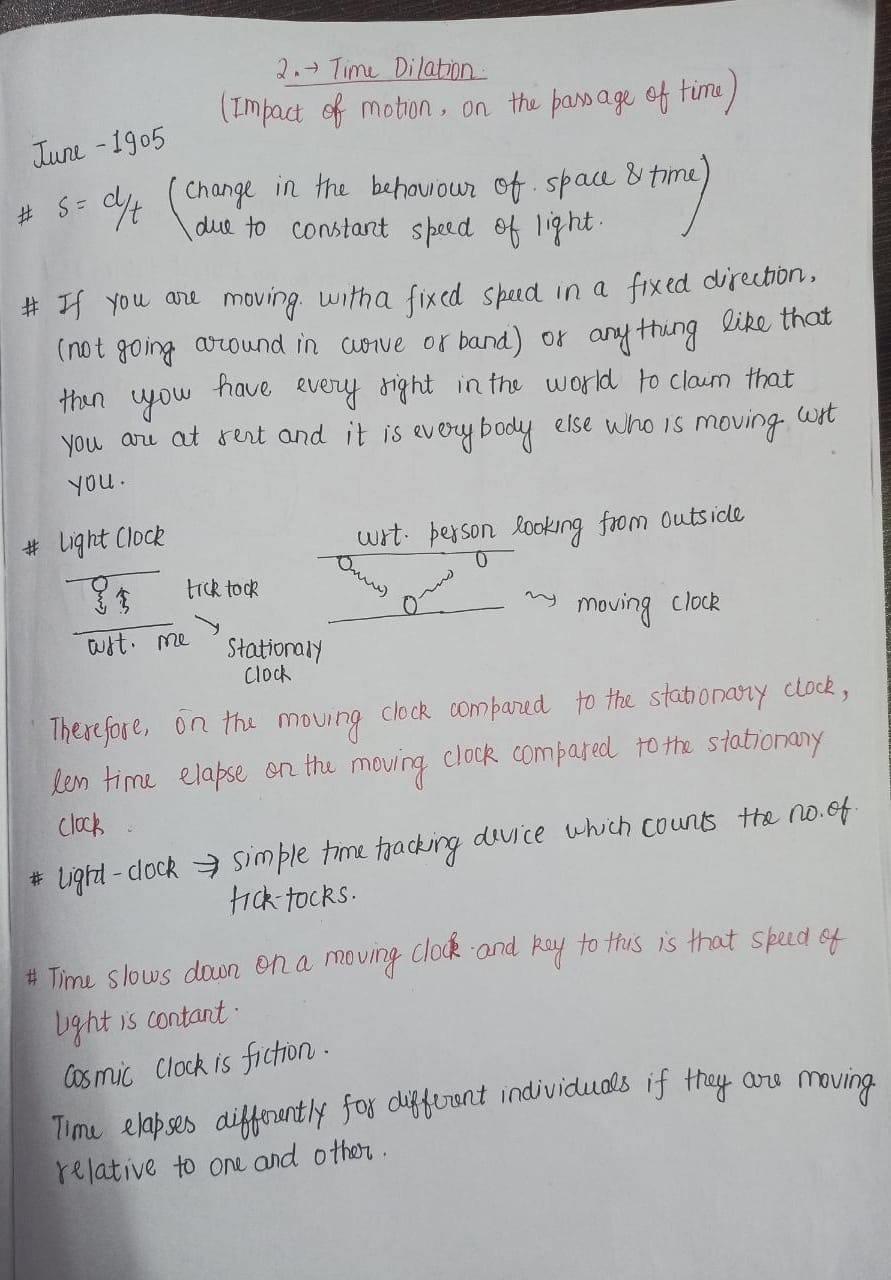 2.→ Time Dilation.
(Impact of motion, on the passage of time)
June - 1905
# s = d/t (Change in the behaviour of. space & time)
due to constant speed of light.
# If you are moving. with a fixed speed in a fixed direction,
(not going around in curve or band) or anything like that
then you have every right in the world to claim that
you are at rest and it is everybody else who is moving wrt
you.
# Light Clock
wrt. person looking from outside
tick tock
wrt. me
Stationary
Clock
moving clock
Therefore, on the moving clock compared to the stationary clock,
less time elapse on the moving clock compared to the stationary
clock.
# Light-clock ⇒ simple time tracking device which counts the no. of.
tick-tocks.
# Time slows down on a moving clock and key to this is that speed of
light is contant.
Cosmic Clock is fiction.
Time elapses differently for different individuals if they are moving
relative to one and other.